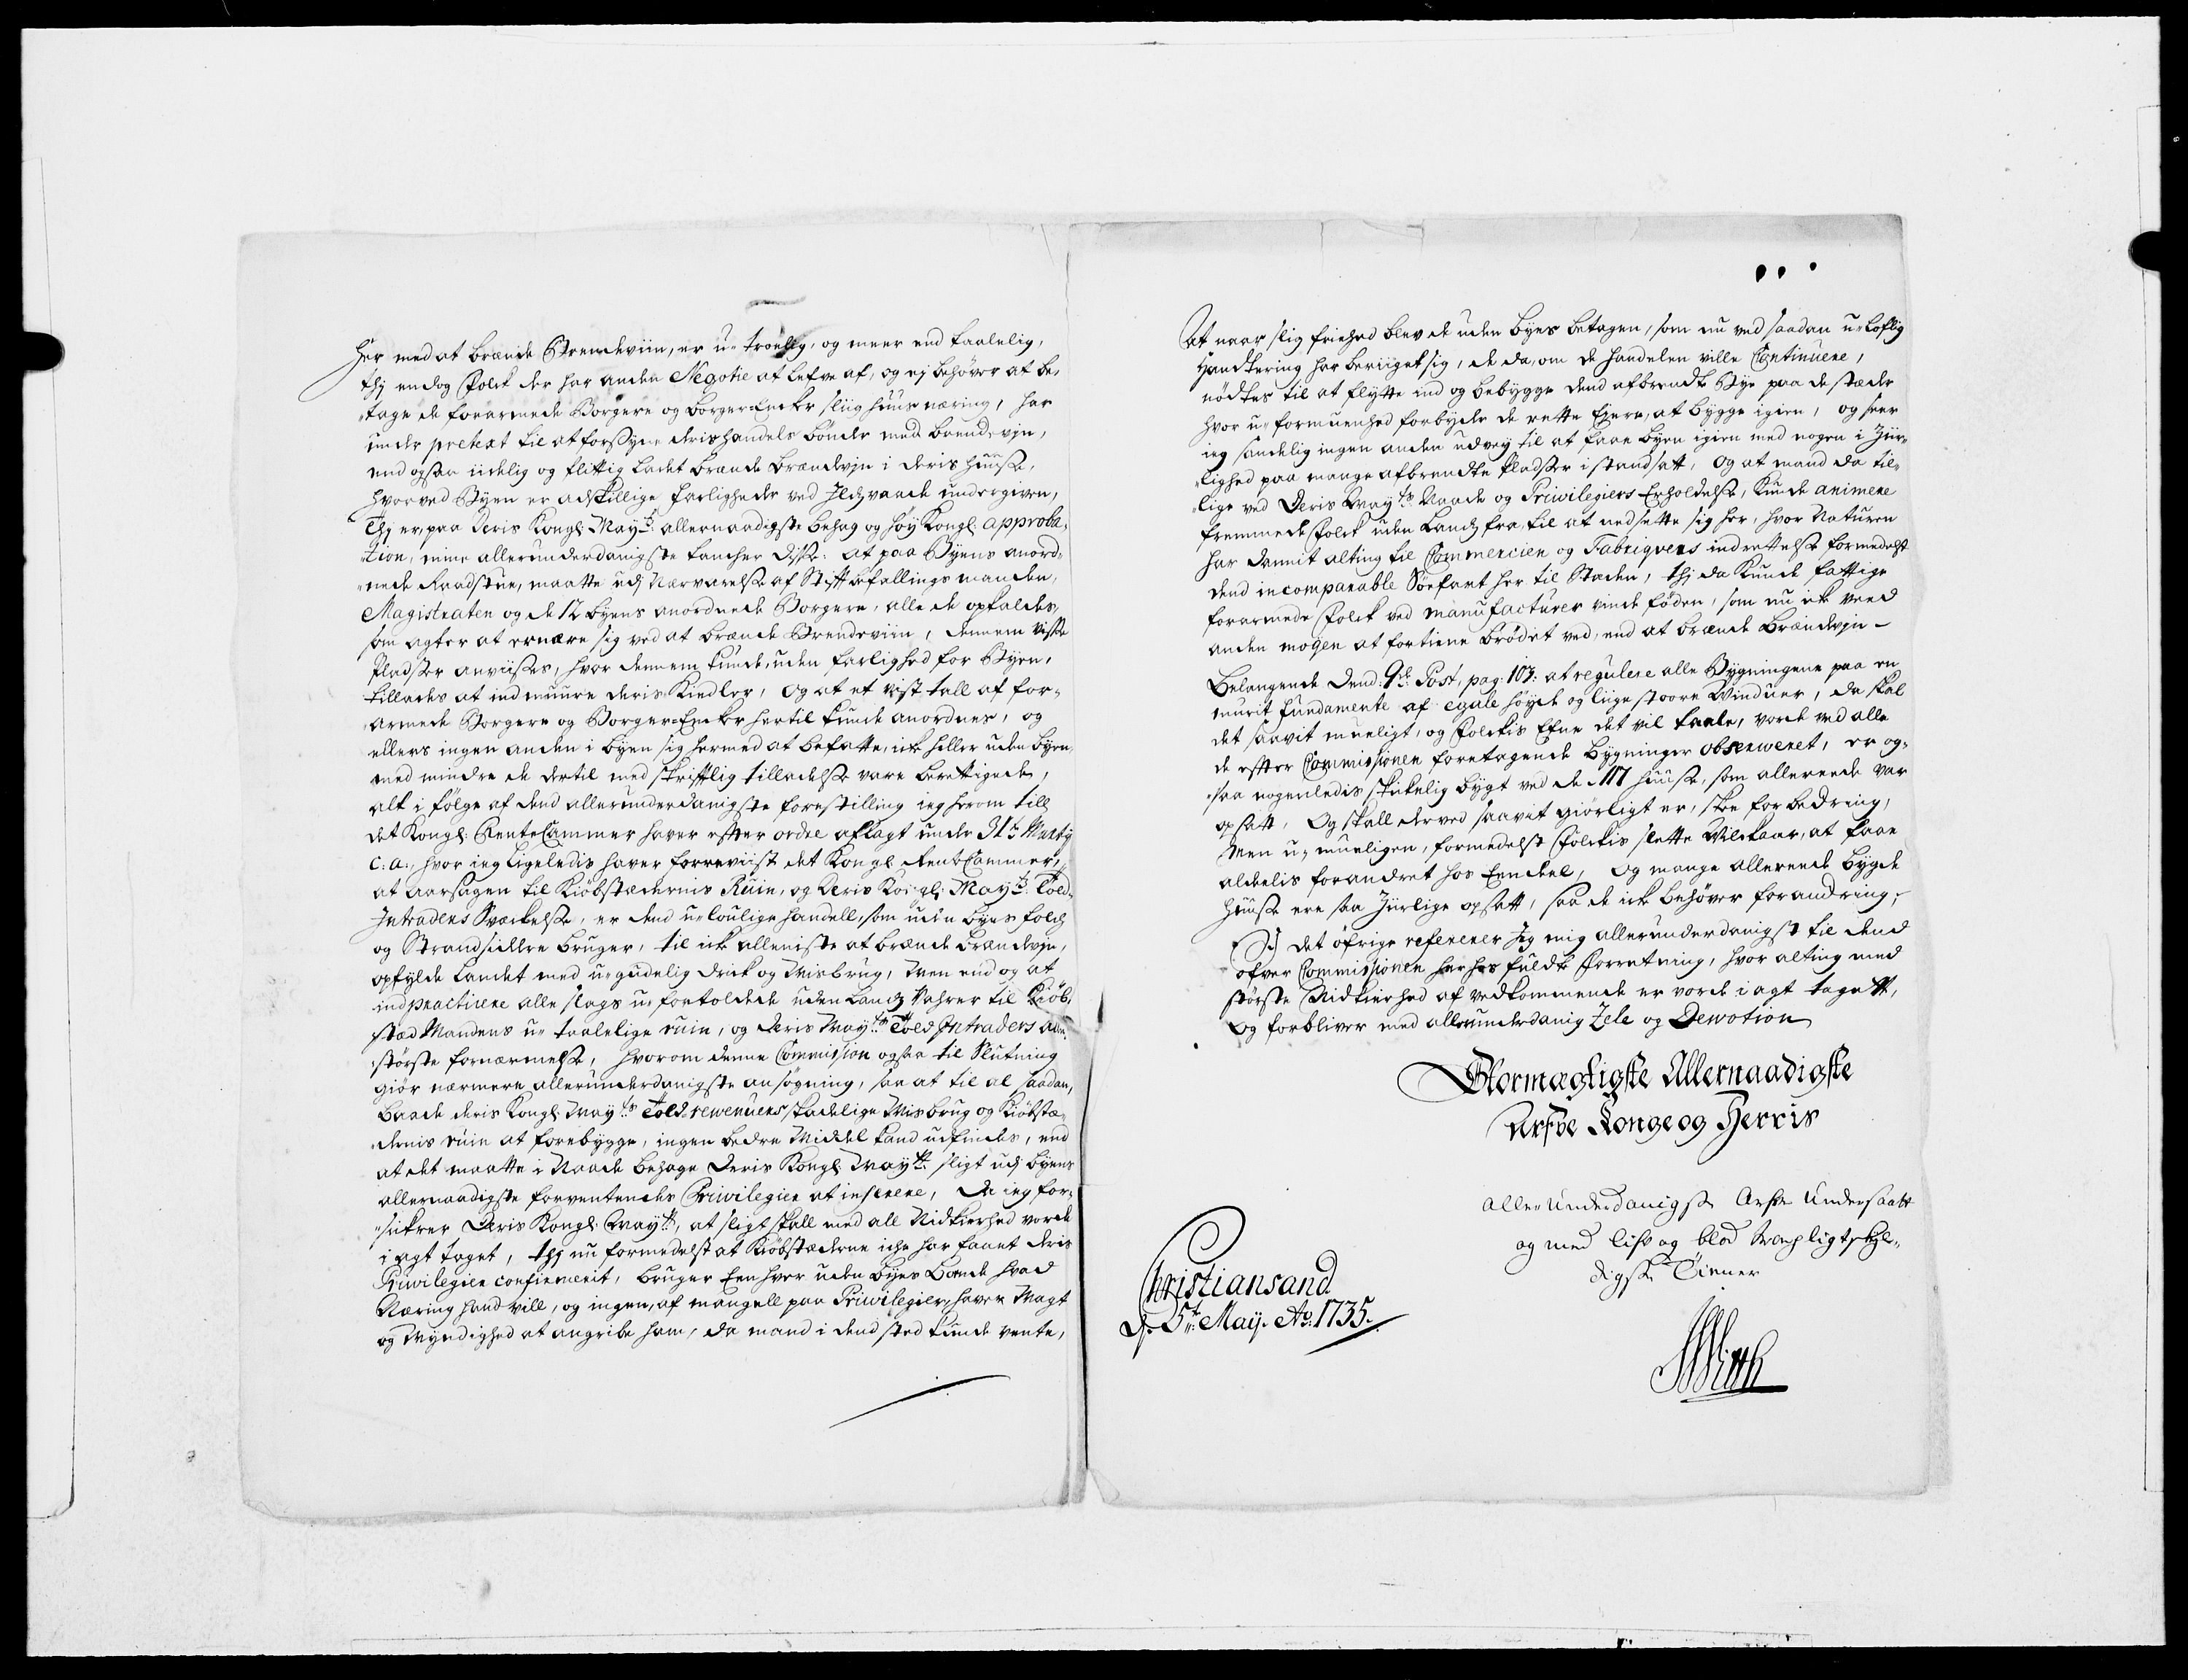 her med at brænde Brendeviin, er u-troelig, og meer end taalelig,
thj endog Folck der har anden Negotie at lefve af, og ej behøver at be-
tage de forarmede Borgere og borger-Encker sliig huus næring, har
under pretext til at forsyne deris handels bønder med brendevjn,
end ogsaa iidelig og flittig ladet brænde brændevjn i deris huuse,
hvorved Byen er adskillige farligheder ved Ildsvaade undergiven,
Thj er, paa Deris Kongl: Mayts: allernaadigste behag og høy Kongl: approba-
tion, mine allerunderdanigste tancher disse: at paa Byens anord-
nede Raadstue, maatte udj Nærværelse af Stiftbefallings manden,
Magistraten og de 12 byens anordnede Borgere, alle de opkaldes,
som agter at ernære sig ved at brænde Brendeviin, dennem visse
Pladser anviises, hvor dennem kunde, uden farlighed for Byen,
tillades at indmuure deris Kiedler, og at et vist tall af for-
armede Borgere og Borger-Encker hertil kunde anordnes, og
ellers ingen anden i byen sig hermed at befatte, ick heller uden byen,
med mindre de dertil med skriftlig tilladelse vare berettigede,
alt i følge af dend allerunderdanigste forestilling ieg herom till
det Kongl: RenteCammer haver efter ordre aflagt under 31te Marty
c: a:, hvor ieg ligeledis haver forreviist det Kongl: RenteCammer,
at aarsagen til Kiøbstædernis Ruin, og Deris Kongl: Mayts: Told-
Intradens Svæckelse, er dend u-loulige handell, som uden byes folck
og Strandsiddre bruger, til ick alleniste at brænde brændevjn,
opfylde landet med u-gudelig drick og Misbrug, Men end og at
indpracticere alle slags u-fortoldede uden lands Vahrer til Kiøb-
stæd Mandens u-taalelige ruin, og Deris Mayts: Told Intraders aller-
største fornærmelse, hvorom denne Commission ogsaa til Slutning
giør nærmere allerunderdanigste ansøgning, saa at til al saadan,
baade deris Kongl: Mayts: Told-revenuers skadelige Misbrug og Kiøbstæ-
dernis ruin at forebygge, ingen bedre Middel kand udfindes, end
at det maatte i Naade behage Deris Kongl: Mayts: sligt udj byens
allernaadigste forventendes Privilegier at inserere, Da ieg for-
sickrer Deris Kongl: Mayts:, at sligt skall med all Nidkierhed vorde
i agt taget, thj nu formedelst at Kiøbstæderne iche har faaet deris
Privilegier confirmerit, bruger Een hver uden byes boende hvad
Næring hand vill, og ingen, af mangell paa Privilegier, haver Magt
og Myndighed at angribe ham, da mand i dend sted kunde vente,
At naar slig friehed blev de uden byes betagen, som nu ved saadan u-loflig
Handtering har beriiget sig, de da, om de handelen ville Continuere,
nødtes til at flytte ind og bebygge dend afbrendte Bye paa de stæder
hvor u-formuenhed forbyder de rette Ejere, at bygge igien, og seer
ieg sandelig ingen anden udvey til at faae byen igien med nogen i Ziir-
lighed paa mange afbrendte Pladser i standsatt, og at mand da til-
lige ved Deris Mayts: Naade og Privilegiers Erholdelse, kunde animere
fremmede Folck uden Lands fra, til at nedsette sig her, hvor Naturen
har dannit alting til Commercien og Fabriqvers indrettelse formedelst
dend incomparable Søefart her til Staden, thj da kunde fattige
forarmede Folck ved manufacturer vinde føden, som nu ick veed
anden mogen at fortiene brødet ved, end at brænde brændevjn -
Belangende Dend: 9de: Post, pag: 103: at regulere alle Bygningene paa en
muurit fundamente af egale høyde og liige stoore Vinduer, da skal
det saavit mueligt, og Folckis Efne det vil taale, vorde ved alle
de efter Commissionen foretagende bygninger observeret, er og-
saa nogenledis skickelig bygt ved de 117 huuse, som allereede var
opsatt, Og skall derved saavit giørligt er, skee forbedring,
Men u-mueligen, formedelst Folckis slette Vilckaar, at faae
aldeelis forandret hos Een deel, Og mange allereede bygde
huuse ere saa Ziirlige opsatt, saa de ick behøver forandring,
I det øfrige refererer Jeg mig allerunderdanigst til dend
ofver Commissionen her hos fuldte forretning, hvor alting med
største Nidkierhed af vedkommende er vorde i agt tagett,
Og forbliver med allerunderdanig Zele og Devotion
Stormægtigste Allernaadigste
Arfve Konge og Herris
Aller Underdanigste Arfve Undersaatt
og med lif og blod Troepligtskyl-
digste Tiener
Christiansand
d. 5te: May. Ao: 1735.